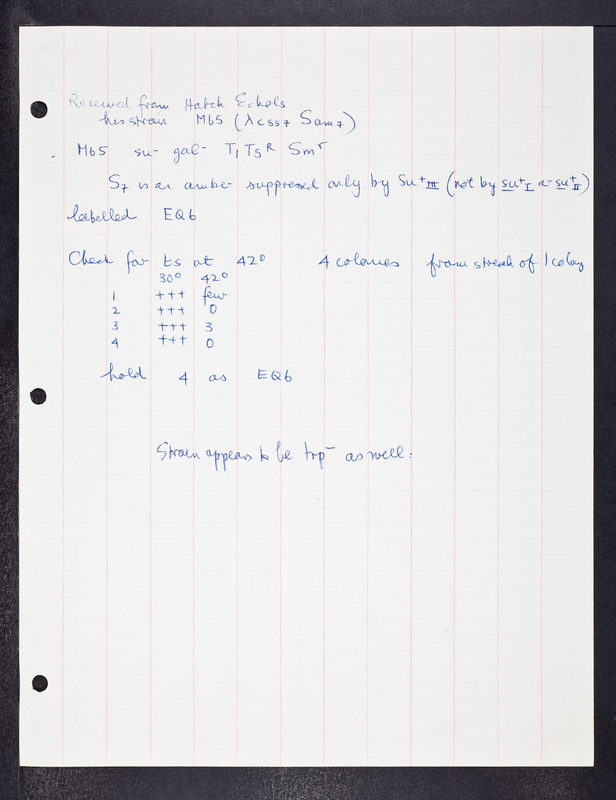 Received from Hatch Echols
his strain M65 (λc857 Sam7)
M65 su- gal- T1 T5R Smr
S7 is an amber suppressed only by Su+III (not by su+I or su+II)
labelled EQ6
Check for ts at 42° 4 colonies from streak of 1 colony
30° 42°
1 +++ few
2 +++ 0
3 +++ 3
4 +++ 0
hold 4 as EQ6
Strain appears to be trp- as well.